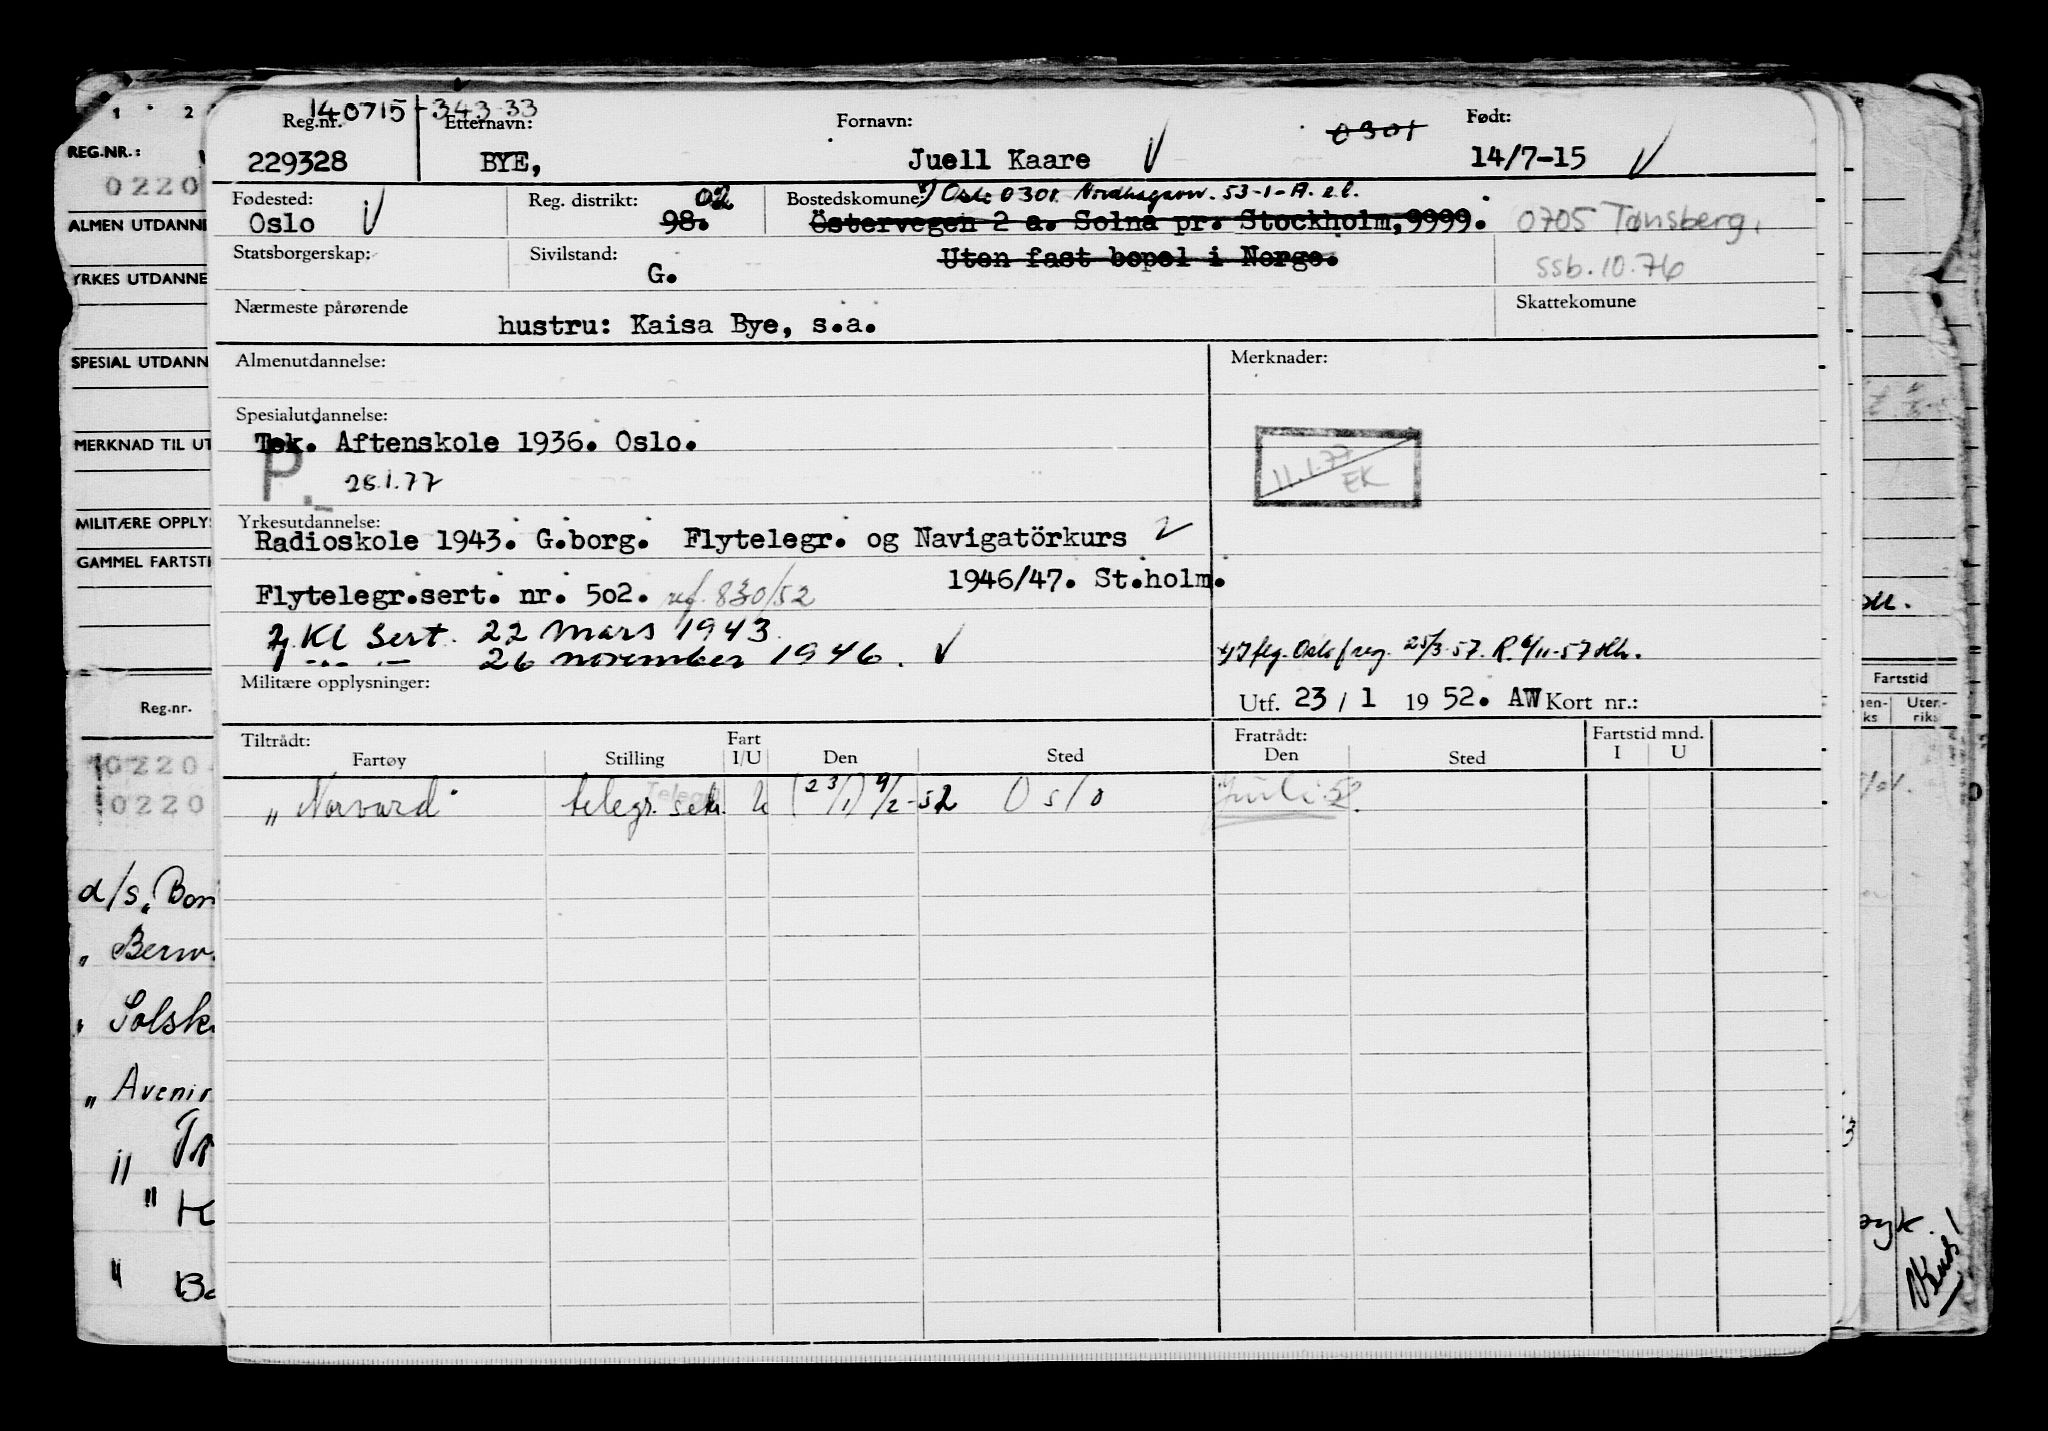 140715-343 33
Reg.nr. Etternavn: Fornavn: 0301 Født:
229328 BYE, Juell Kaare 14/7-15
Fødested: Reg. distrikt: 02 Bostedskomune: Oslo 0301 53-1-A. e.l.
Oslo 98. Östervegen 2 a. Solna pr. Stockholm, 9999. 0705 Tønsberg.
Statsborgerskap: Sivilstand: G. Uten fast bopel i Norge. ssb. 10.76
Nærmeste pårørende Skattekomune
hustru: Kaisa Bye, s.a.
Almenutdannelse: Merknader:
Spesialutdannelse:
Tek. Aftenskole 1936. Oslo.
P. 11.1.77
EK
Yrkesutdannelse:
Radioskole 1943. G.borg. Flytelegr. og Navigatörkurs
1946/47. St.holm.
Flytelegr.sert. nr. 502. ref. 830/52
2 Kl Sert. 22 mars 1943
1 -"- -"- 26 november 1946.
Militære opplysninger:
Utf. 23 / 1 19 52. AW Kort nr.:
Tiltrådt: Fart Fratrådt: Fartstid mnd.
Fartøy Stilling I/U Den Sted Den Sted I U
"Norvard" telegr. U (23/1) 9/2-52 Oslo Juli 52.
1 2
REG.NR.:
0220
ALMEN UTDANNE
YRKES UTDANNE
SPESIAL UTDANN
MERKNAD TIL UT
MILITÆRE OPPLYS
GAMMEL FARTSTI
Reg.nr.
10220
0220
d/s "Bor
" Berw
" Solsk
" Avenir
" Tr
" K
" Ba
Fartstid
Uten-
riks